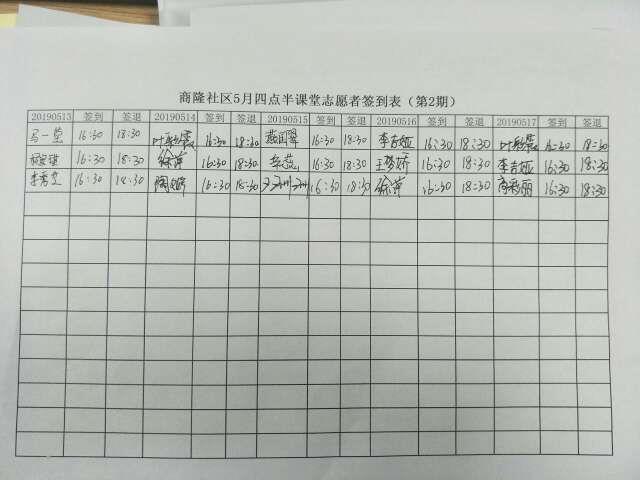 商隆社区5月四点半课堂志愿者签到表（第2期）
20190513 签到 签退 20190514 签到 签退 20190515 签到 签退 20190516 签到 签退 20190517 签到 签退
马一莹 16:30 18:30 16:30 18:30 16:30 18:30 李吉娅 16:30 18:30 16:30 18:30
16:30 18:30 徐萍 16:30 18:30 16:30 18:30 王梦娇 16:30 18:30 李吉娅 16:30 18:30
16:30 18:30 16:30 18:30 16:30 18:30 徐萍 16:30 18:30 高彩丽 16:30 18:30